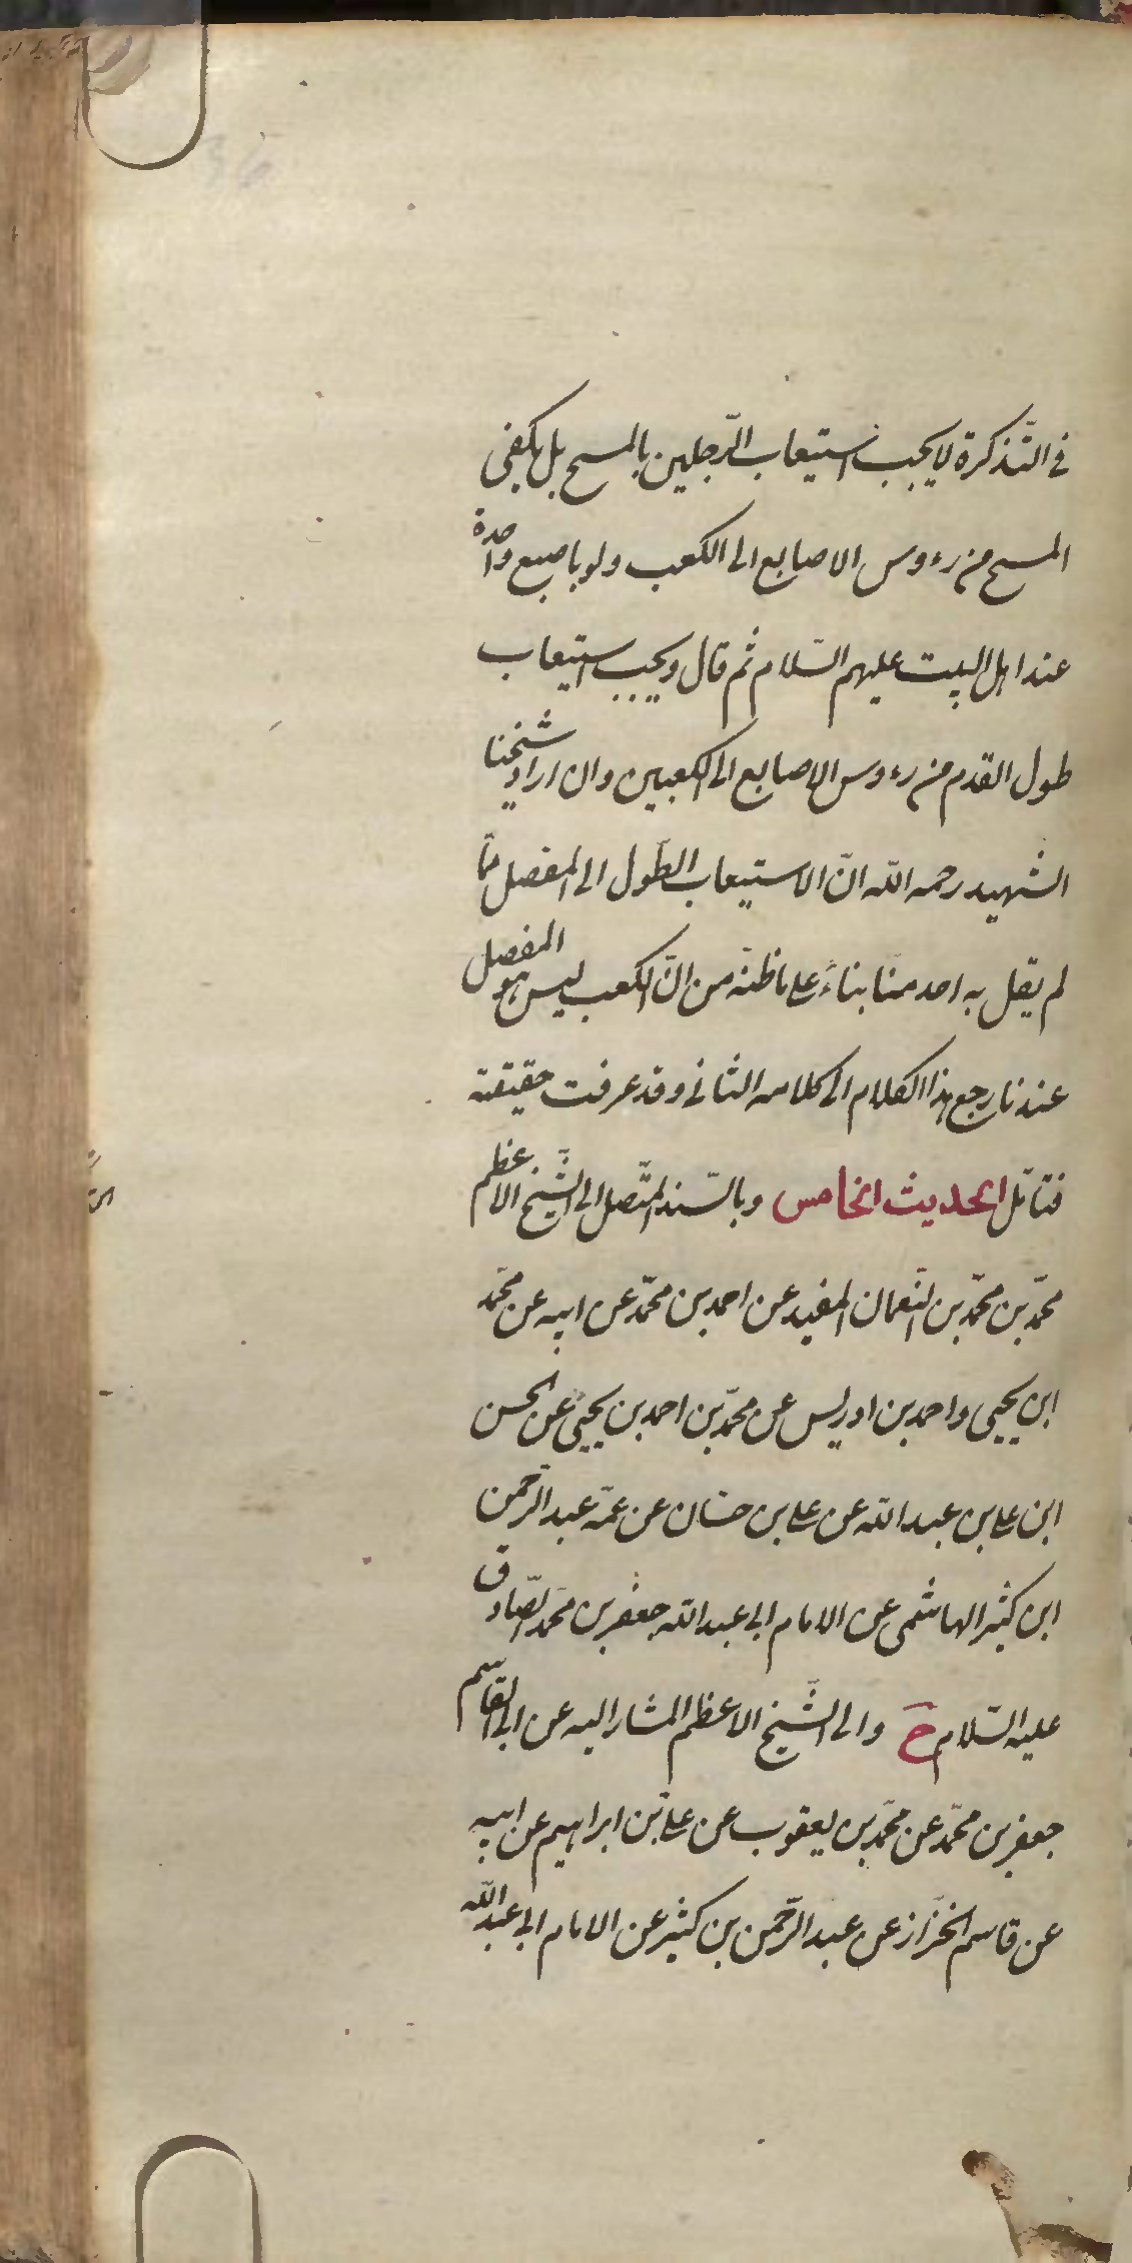 في التّذكرة لا يجب استيعاب الرّجلين بالمسح بل يكفى
المسح من رءوس الاصابع الى الكعب ولو باصبع واحدة
عند اهل البيت عليهم السّلام ثم قال ويجب استيعاب
طول القدم من رءوس الاصابع الى الكعبين وان اراد شيخنا
الشهيد رحمه اللّه انّ الاستيعاب الطّولى الى المفصل ممّا
لم يقل به احد منّا بناءً على ما ظنّه من انّ الكعب ليس هو المفصل
عندنا رجع هذا الكلام الى كلامه الثانى وقد عرفت حقيقته
فتامّل الحديث الخامس وبالسّند المتّصل الى الشّيخ الاعظم
محمّد بن محمّد بن النّعمان المفيد عن احمد بن محمّد عن ابيه عن محمّد
ابن يحيى واحمد بن ادريس عن محمّد بن احمد بن يحيى عن الحسن
ابن على بن عبد اللّه عن على بن حسّان عن عمّه عبد الرّحمن
ابن كثير الهاشمى عن الامام ابى عبد اللّه جعفر بن محمّد الصّادق
عليه السّلام ح والى الشّيخ الاعظم المشار اليه عن ابى القاسم
جعفر بن محمّد عن محمّد بن يعقوب عن على بن ابراهيم عن ابيه
عن قاسم الخزّاز عن عبد الرّحمن بن كثير عن الامام ابى عبد اللّه